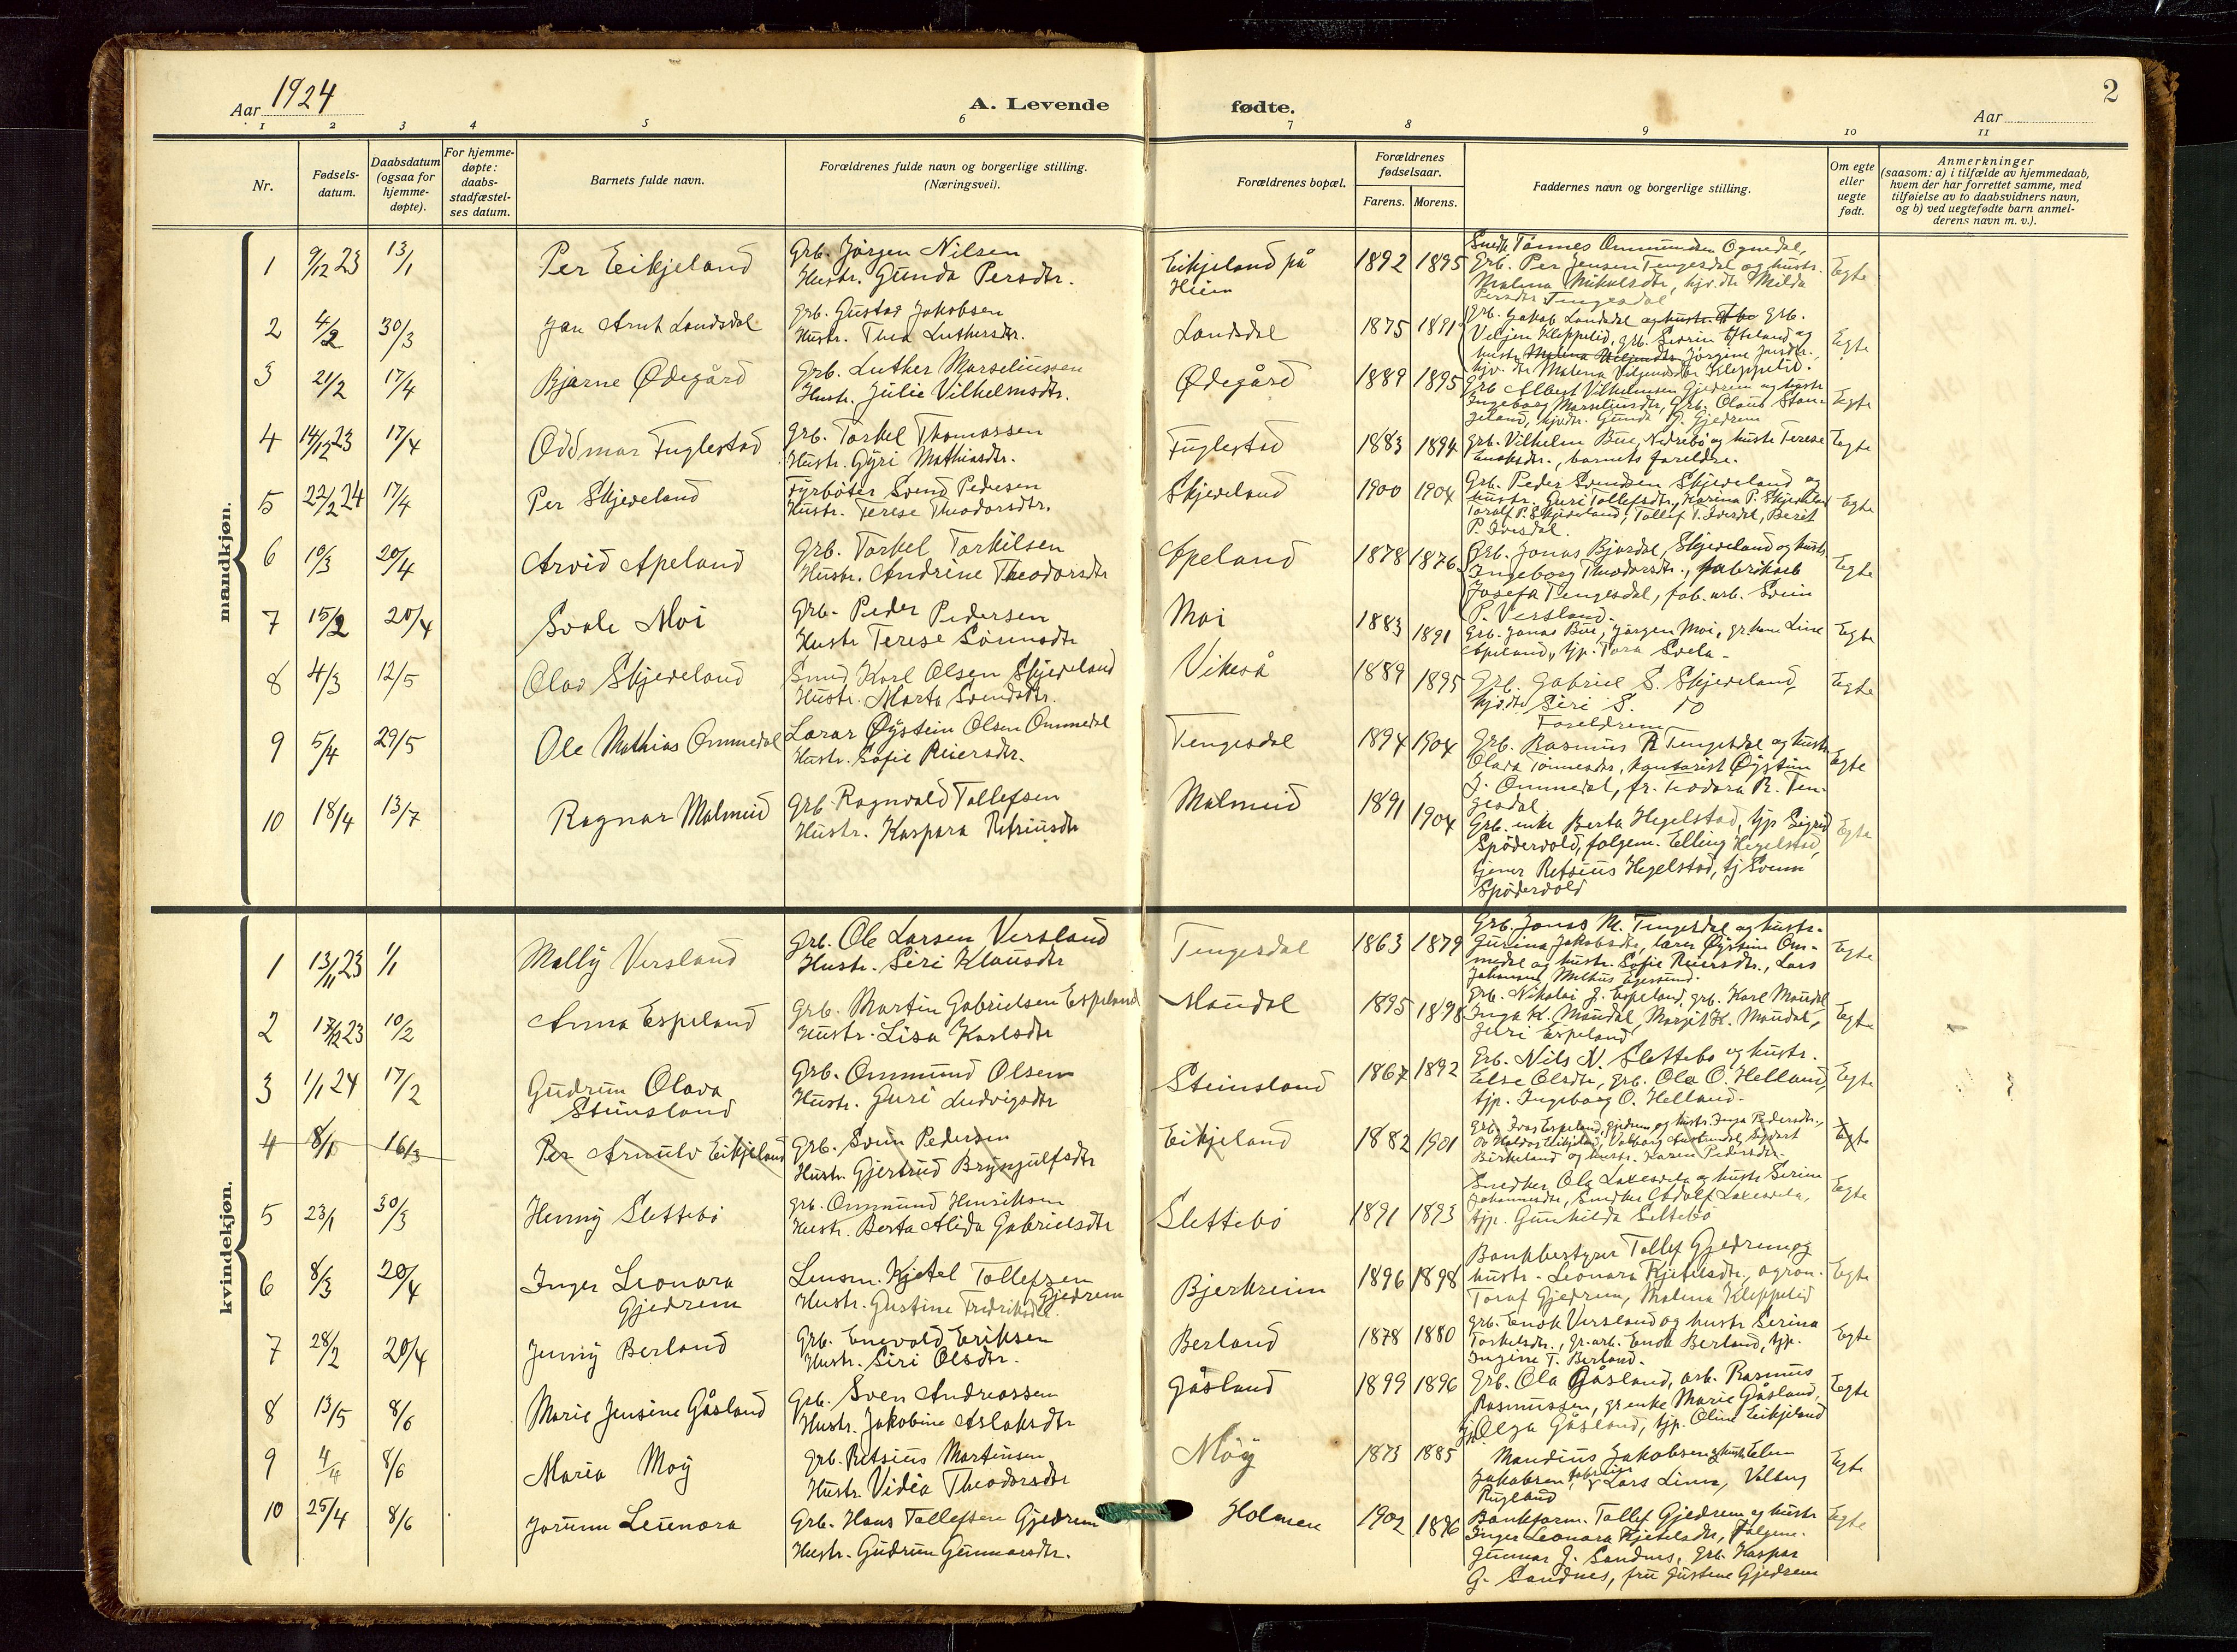 Aar 1924
A. Levende fødte.
2
Aar
1 2 3 4 5 6 7 8 9 10 11
Nr.
Fødsels-datum.
Daabsdatum (ogsaa for hjemme-døpte).
For hjemme-døpte: daabs-stadfæstel-ses datum.
Barnets fulde navn.
Forældrenes fulde navn og borgerlige stilling. (Næringsvei).
Forældrenes bopæl.
Forældrenes fødselsaar.
Farens. Morens.
Faddernes navn og borgerlige stilling.
Om egte eller uegte født.
Anmerkninger (saasom: a) i tilfælde av hjemmedaab, hvem der har forrettet samme, med tilføielse av to daabsvidners navn, og b) ved uegtefødte barn anmel-derens navn m. v.).
mandkjøn.
1 9/12 23 13/1 Per Eikjeland Grb. Jørgen Nilsen
Hustr. Gunda Persdtr. Eikjeland på Heien 1892 1895 Egte
Smed Tønnes Ommundsen Ognedal,
Grb. Per Jensen Tengesdal og hustr.
Malena Mikalsdtr, hjv. dtr Milda
Persdtr Tengesdal
2 4/2 30/3 Jan Arnt Landsdal Grb. Gustav Jakobsen
Hustr. Thea Luthersdtr. Landsdal 1875 1891 Egte
Grb. Jakob Landsdal og hustr. grb.
Veljen Kleppelid, grb. Sevrin Efteland og
hustr. Jørgine Jonsdtr.,
hjv. dtr Malena Viljensdtr Kleppelid.
3 21/2 17/4 Bjarne Ødegård Grb. Luther Marseliussen
Hustr. Julie Vilhelmsdtr. Ødegård 1889 1895 Egte
Grb Albert Vilhelmsen Gjedrem og hustr
Ingeborg Marseliusdtr, Grb. Olaus Stan-
geland, hjvdtr. Gunda G. Gjedrem
4 14/12 23 17/4 Oddmar Fuglestad Grb. Torkel Thomassen
Hustr. Gyri Mathiasdtr. Fuglestad 1883 1894 Egte
Grb. Vilhelm Bue, Nedrebø og hustr Terese
Enoksdtr., barnets foreldre.
5 22/2 24 17/4 Per Skjeveland Fyrbøter Svend Pedersen
Hustr. Terese Theodorsdtr. Skjeveland 1900 1904 Egte
Grb. Peder Svendsen Skjeveland og
hustr. Guri Tollefsdtr, Karina P. Skjeveland
Toralf P. Skjeveland, Tollef T. Ivesdal, Berit
P. Ivesdal.
6 10/3 20/4 Arvid Apeland Grb. Torkel Torkilsen
Hustr. Andrine Theodorsdtr Apeland 1878 1876 Egte
Grb. Jonas Bjordal, Skjeveland og hustr.
Ingeborg Theodorsdtr., fabrikarb
Josefa Tengesdal, fab. arb. Svein
P. Versland.
7 15/2 20/4 Svale Moi Grb. Peder Pedersen
Hustr Terese Sørensdtr Moi 1883 1891 Egte
Grb. Jonas Bue, Jørgen Moi, gr.kone Line
Apeland, tjp. Tora Svela
8 4/3 12/5 Olav Skjeveland Smed Karl Olsen Skjeveland
Hustr. Marta Svendsdtr. Vikeså 1889 1895 Egte
Grb. Gabriel S. Skjeveland,
hjvdtr Siri S. do
Foreldrene
9 5/4 29/5 Ole Mathias Ommedal Lærar Øystein Olsen Ommedal
Hustr. Sofie Reiersdtr. Tengesdal 1894 1904 Egte
Grb. Rasmus R Tengesdal og hustr
Olava Tønnesdtr, kontorist Øystein
J. Ommedal, fr. Teodora R. Ten-
gesdal
10 18/4 13/7 Ragnar Malmeid Grb Ragnvald Tollefsen
Hustr. Kaspara Retsiusdtr Malmeid 1891 1904 Egte
Grb. enke Berta Hegelstad, tjp Sigrid
Spødervold, folgem. Elling Hegelstad,
tjener Retsius Hegelstad, tj Svenn
Spødervold
kvindekjøn.
1 13/11 23 1/1 Mally Versland Grb. Ole Larsen Versland
Hustr. Siri Klausdtr Tengesdal 1863 1879 Egte
Grb. Jonas M. Tengesdal og hustr.
Gurina Jakobsdtr, lærer Øystein Om-
medal og hustr. Sofie Reiersdtr., Lars
Johansen Melhus Egersund.
2 17/12 23 10/2 Anna Espeland Grb. Martin Gabrielsen Espeland
Hustr. Lisa Karlsdtr Maudal 1895 1898 Egte
Grb. Nikolai J. Espeland, grb. Karl Maudal
Inga K. Maudal, Margit K. Maudal,
Guri Espeland
3 1/1 24 17/2 Gudrun Olava Steinsland Grb. Ommund Olsen
Hustr. Guri Ludvigsdtr Steinsland 1867 1892 Egte
Grb. Nils N. Slettebø og hustr.
Else Olsdtr, grb. Ola O. Helland,
tjp. Ingeborg O. Helland.
4 8/1 16/3 Per Arnulv Eikjeland Grb. Svein Pedersen
Hustr. Gjertrud Brynjulfsdtr Eikjeland 1882 1901 Egte
Grb. Ivar Espeland, gjedrem og hustr. Inga Pedersdtr.,
Valborg Austrumdal, Sigvart
Birkeland og hustr. Karen Pedersdtr.
5 23/1 30/3 Henny Slettebø Grb. Ommund Henriksen
Hustr. Berta Alida Gabrielsdtr Slettebø 1891 1893 Egte
Snedker Ola Laxesvela og hustr Serine
Johannesdtr, Snedker Adolf Laxesvela,
tjp. Gunhilda Slettebø
6 8/3 20/4 Inger Leonora Gjedrem Lensm. Kjetel Tollefsen Gjedrem
Hustr. Gustine Fredriksdtr Bjerkreim 1896 1898 Egte
Bankbestyrer Tollef Gjedrem og
hustr. Leonora Kjetelsdtr, agron.
Toraf Gjedrem, Malena Kleppelid
7 28/2 20/4 Jenny Berland Grb. Enevald Eriksen
Hustr. Siri Olsdtr. Berland 1878 1880 Egte
Grb. Enok Versland og hustr Serina
Torkelsdtr., gr.arb. Enok Berland, tjp.
Ingine T. Berland.
8 13/5 8/6 Marie Jensine Gåsland Grb. Sven Andreassen
Hustr. Jakobine Aslaksdtr Gåsland 1899 1896 Egte
Grb. Ola Gåsland, arb. Rasmus
Rasmussen, gr enke Marie Gåsland,
tjp Olga Gåsland, tjp. Oline Eikjeland
9 4/4 8/6 Maria Moy Grb. Retsius Martinsen
Hustr. Videa Theodorsdtr Møy 1873 1885 Egte
Mandius Jakobsen og hustr Elen
Jakobsen, Lars Lima, Valborg
Rugland
10 25/4 8/6 Jorunn Leonora Grb. Hans Tollefsen Gjedrem
Hustr. Gudrun Gunnarsdtr. Holmen 1902 1896 Egte
Bankform. Tollef Gjedrem og hustr
Inger Leonora Kjetelsdtr, folgem.
Gunnar G. Sandnes, Grb. Kaspar
G. Sandnes, fru Gustine Gjedrem